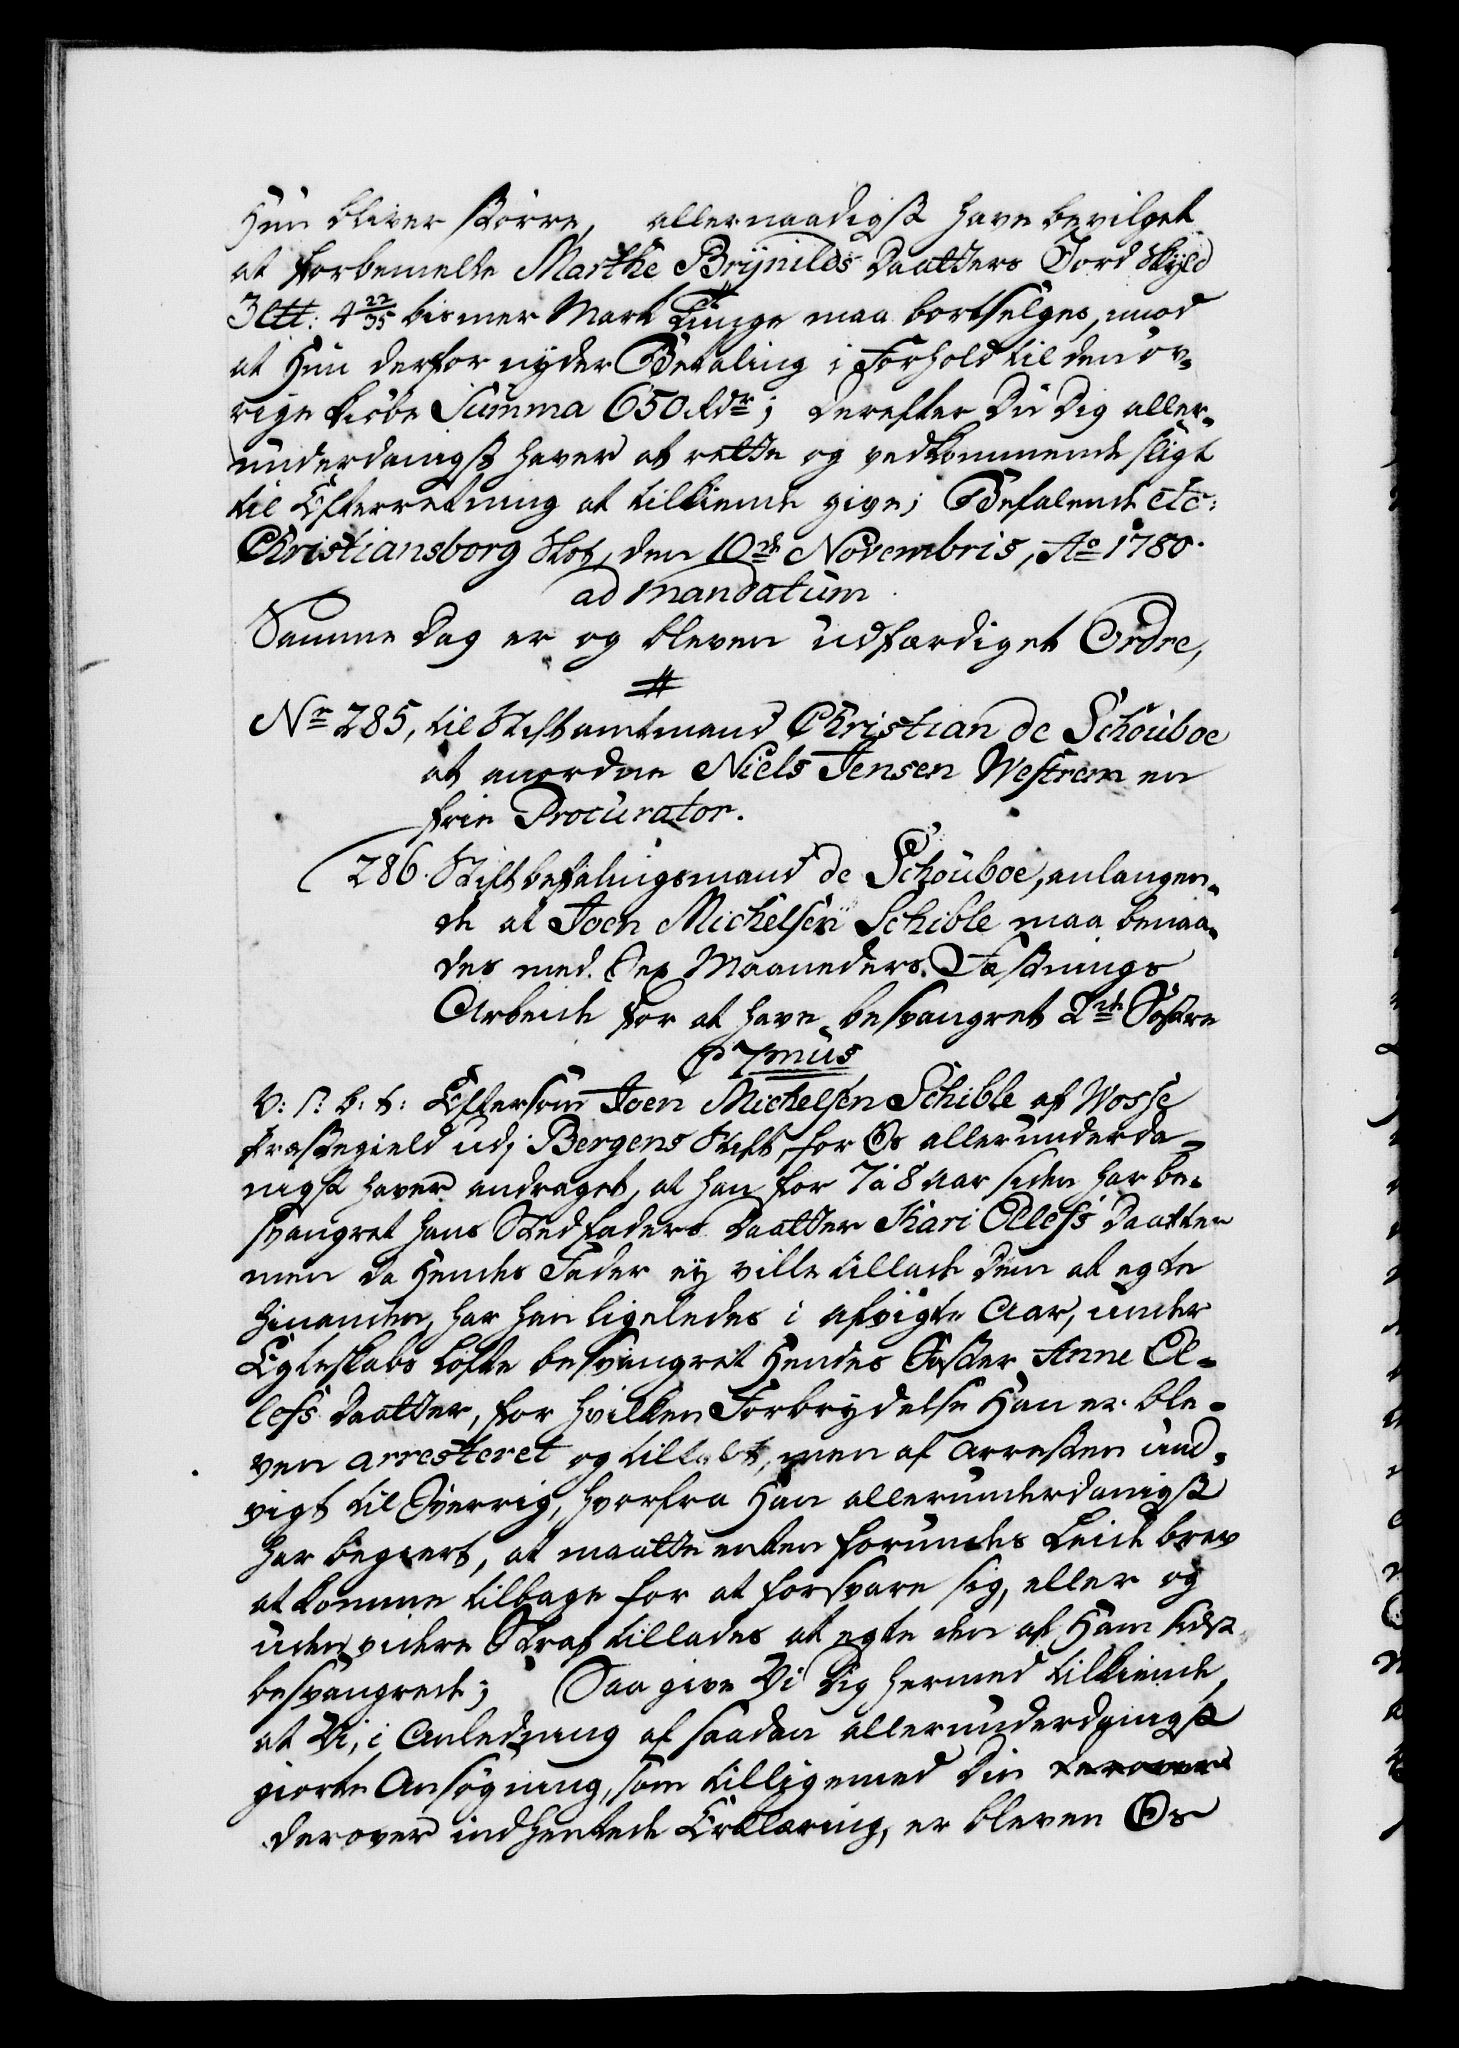 Hun bliver større, allernaadigst have bevilget
at forbemelte Marthe Brynilds Daatters Jord Skyld
3 ett: 4 22/35 bismer Mark Tunge maa bortselges, mod
at Hun derfor nyder Betaling i Forhold til den øv-
rige Kiøbe Summa 650 Rdr; derefter Du Dig aller-
underdanigst haver at rette og vedkommende sligt
til Efterretning at tilkiende give; Befalende etc:
Christiansborg Slot, den 10de Novembris, Ao 1780.
ad mandatum
Samme Dag er og bleven udfærdiget Ordre,
Nr 285, til Stiftamtmand Christian de Schouboe
at anordne Niels Jensen Westrem en
frie Procurator.
286. Stiftbefalingsmand de Schouboe, anlangen-
de at Joen Michelsen Schible maa benaa-
des med Sex Maaneders Fæstnings
Arbeide for at have besvangret 2de Søstre
C 7mus
V: S: B: T: Eftersom Joen Michelsen Schible af Wosse
Præstegield udj Bergens Stift, for Os allerunderda-
nigst haver andraget, at han for 7 à 8 Aar siden har be-
svangret hans Stedfaders Daatter Kari Ellefs Daatter
men da Hendes Fader ey ville tillade dem at egte
hinanden, har han ligeledes i afvigte Aar, under
Egteskabs Løfte besvangret Hendes Søster Anne El-
lefs Daatter, for hvilken Forbrydelse Han er ble-
ven arresteret og tiltalt, men af Arresten und-
vigt til Sverrig, hvorfra Han allerunderdanigst
har begiert, at maatte enten forundes Leide brev
at komme tilbage for at forsvare sig, eller og
uden videre Straf tillades at egte den af Ham sidst
besvangrede; Saa give Vi Dig hermed tilkiende,
at Vi, i Anledning af saadan allerunderdanigst
giorte Ansøgning, som tilligemed Din derover
derover indhentede Erklæring, er bleven Os